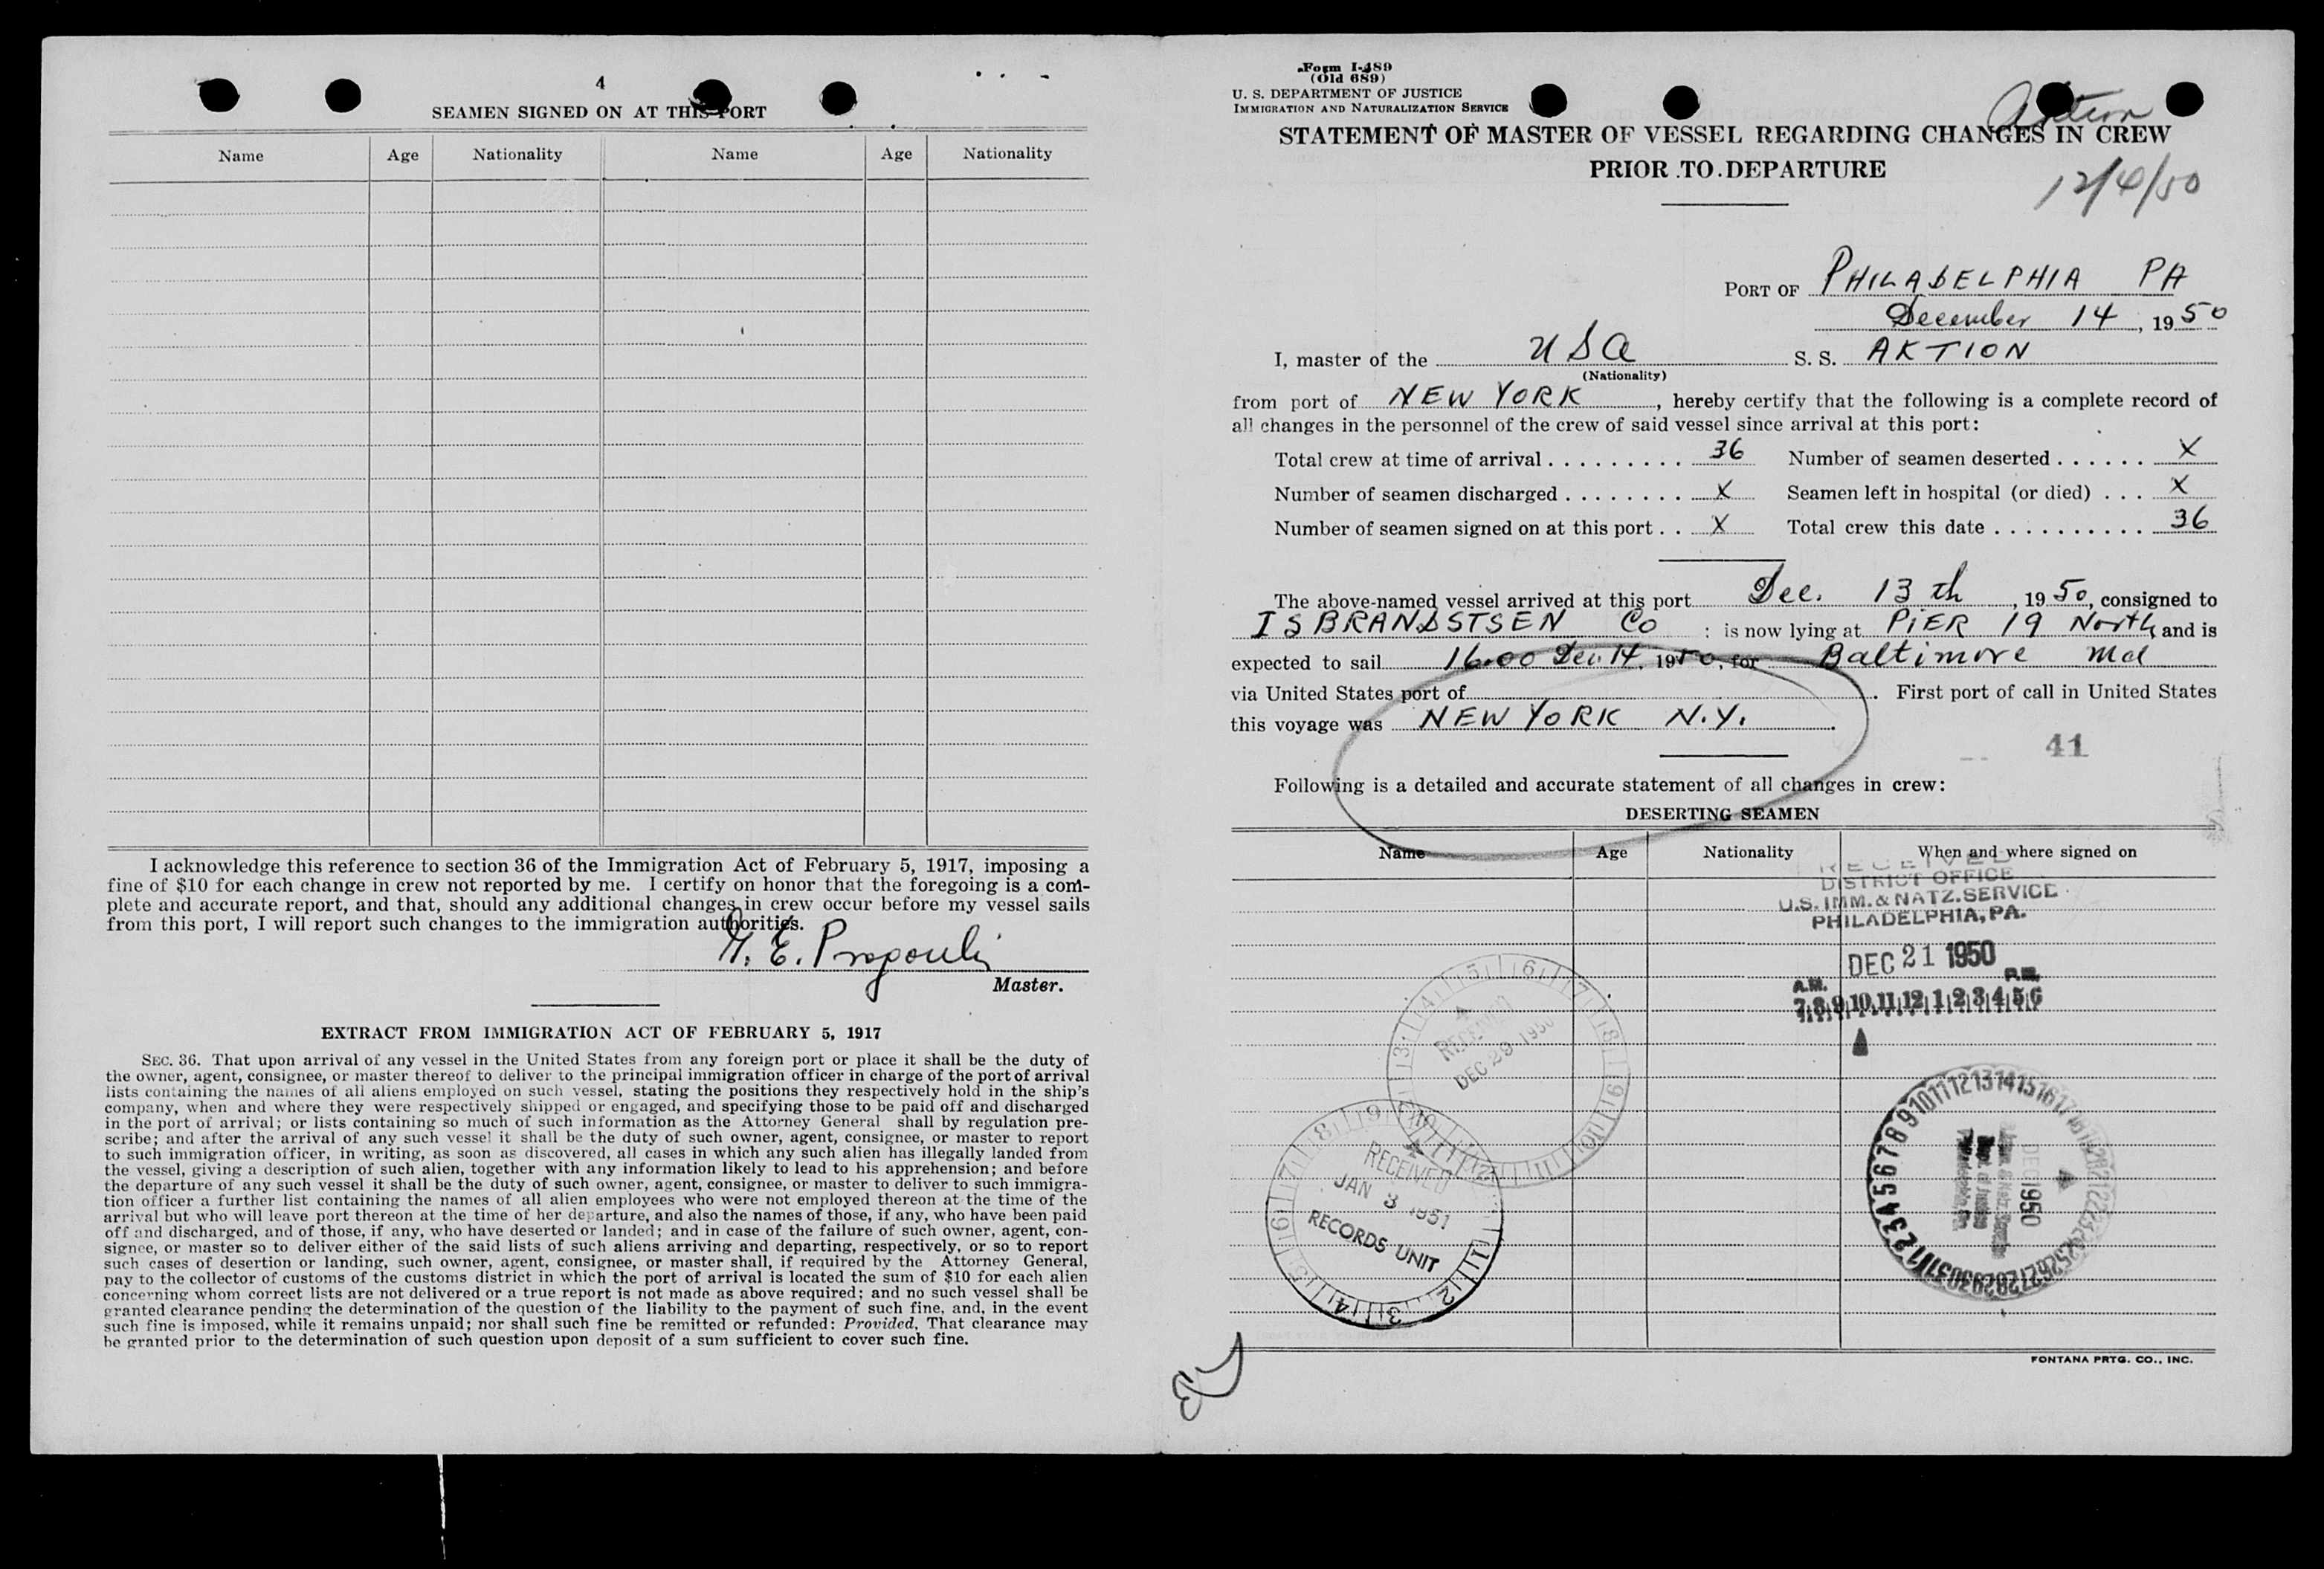 4
SEAMEN SIGNED ON AT THIS PORT
Name Age Nationality Name Age Nationality
I acknowledge this reference to section 36 of the Immigration Act of February 5, 1917, imposing a
fine of $10 for each change in crew not reported by me. I certify on honor that the foregoing is a com-
plete and accurate report, and that, should any additional changes in crew occur before my vessel sails
from this port, I will report such changes to the immigration authorities.
Master.
EXTRACT FROM IMMIGRATION ACT OF FEBRUARY 5, 1917
SEC. 36. That upon arrival of any vessel in the United States from any foreign port or place it shall be the duty of
the owner, agent, consignee, or master thereof to deliver to the principal immigration officer in charge of the port of arrival
lists containing the names of all aliens employed on such vessel, stating the positions they respectively hold in the ship's
company, when and where they were respectively shipped or engaged, and specifying those to be paid off and discharged
in the port of arrival; or lists containing so much of such information as the Attorney General shall by regulation pre-
scribe; and after the arrival of any such vessel it shall be the duty of such owner, agent, consignee, or master to report
to such immigration officer, in writing, as soon as discovered, all cases in which any such alien has illegally landed from
the vessel, giving a description of such alien, together with any information likely to lead to his apprehension; and before
the departure of any such vessel it shall be the duty of such owner, agent, consignee, or master to deliver to such immigra-
tion officer a further list containing the names of all alien employees who were not employed thereon at the time of the
arrival but who will leave port thereon at the time of her departure, and also the names of those, if any, who have been paid
off and discharged, and of those, if any, who have deserted or landed; and in case of the failure of such owner, agent, con-
signee, or master so to deliver either of the said lists of such aliens arriving and departing, respectively, or so to report
such cases of desertion or landing, such owner, agent, consignee, or master shall, if required by the Attorney General,
pay to the collector of customs of the customs district in which the port of arrival is located the sum of $10 for each alien
concerning whom correct lists are not delivered or a true report is not made as above required; and no such vessel shall be
granted clearance pending the determination of the question of the liability to the payment of such fine, and, in the event
such fine is imposed, while it remains unpaid; nor shall such fine be remitted or refunded: Provided, That clearance may
be granted prior to the determination of such question upon deposit of a sum sufficient to cover such fine.
Form I-489
(Old 689)
U. S. DEPARTMENT OF JUSTICE
IMMIGRATION AND NATURALIZATION SERVICE
Aktion
STATEMENT OF MASTER OF VESSEL REGARDING CHANGES IN CREW
PRIOR TO DEPARTURE
PORT OF PHILADELPHIA PA
December 14, 1950
I, master of the USA S. S. AKTION
(Nationality)
from port of NEW YORK, hereby certify that the following is a complete record of
all changes in the personnel of the crew of said vessel since arrival at this port:
Total crew at time of arrival . . . . . . . . . 36 Number of seamen deserted . . . . . . X
Number of seamen discharged . . . . . . . . X Seamen left in hospital (or died) . . . X
Number of seamen signed on at this port . . X Total crew this date . . . . . . . . . . 36
The above-named vessel arrived at this port Dec. 13th, 1950, consigned to
ISBRANDSTSEN Co : is now lying at PIER 19 North, and is
expected to sail 16.00 Dec. 14, 1950, for Baltimore Md
via United States port of . First port of call in United States
this voyage was NEW YORK N.Y.
41
Following is a detailed and accurate statement of all changes in crew:
DESERTING SEAMEN
Name Age Nationality When and where signed on
RECEIVED
DISTRICT OFFICE
U.S. IMM. & NATZ. SERVICE
PHILADELPHIA, PA.
DEC 21 1950
A.M. P.M.
7 8 9 10 11 12 1 2 3 4 5 6
RECEIVED
DEC 29 1950
RECEIVED
JAN 3 1951
RECORDS UNIT
1950
FONTANA PRTG. CO., INC.